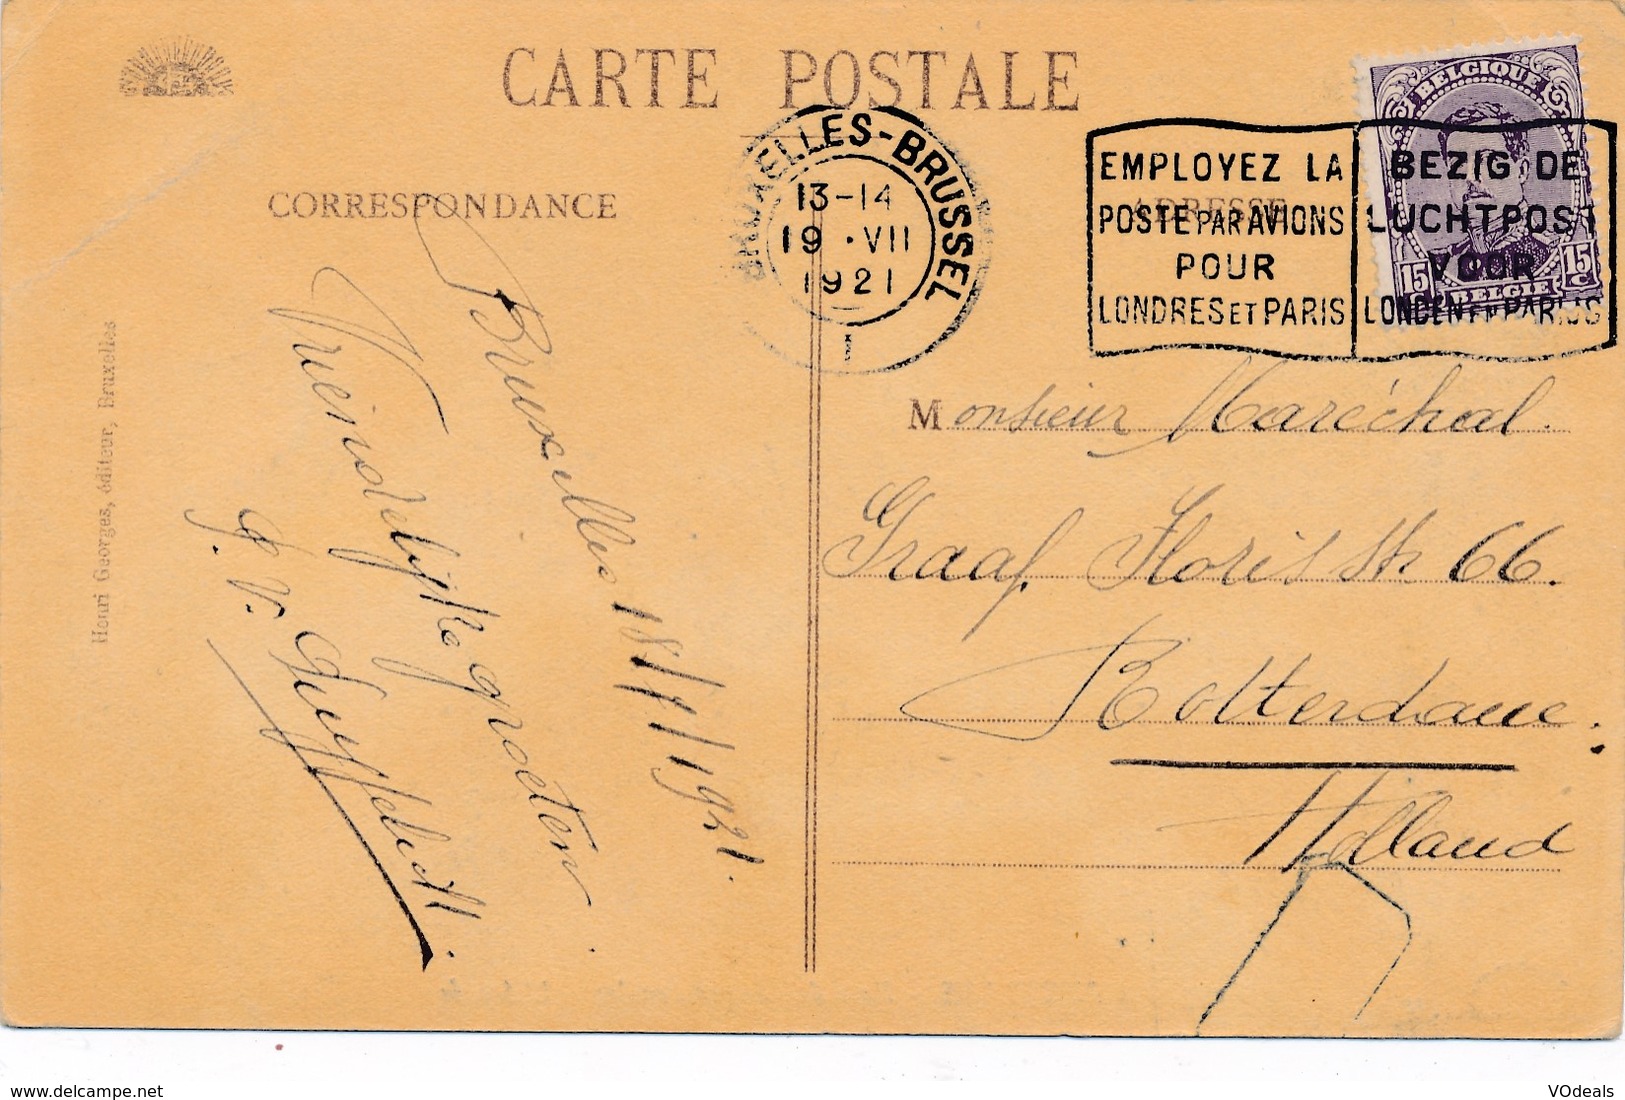 CARTE POSTALE
CORRESPONDANCE
ADRESSE
BRUXELLES-BRUSSEL
13-14
19 · VII
1921
1
EMPLOYEZ LA
POSTE PAR AVIONS
POUR
LONDRES ET PARIS
BEZIG DE
LUCHTPOST
VOOR
LONDEN EN PARIJS
BELGIQUE
15 c
15 c
BELGIE
Bruxelles 18/7/1921.
Vriendelijke groeten
Henri Georges, éditeur, Bruxelles
Monsieur Maréchal.
Graaf Floris str 66.
Rotterdam.
Holland
delcampe.net
VOdeals